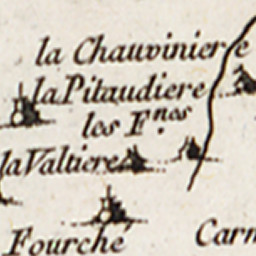 la Chauviniere
la Pitaudiere
les F.nes
la Valtiere
Fourche
Carm